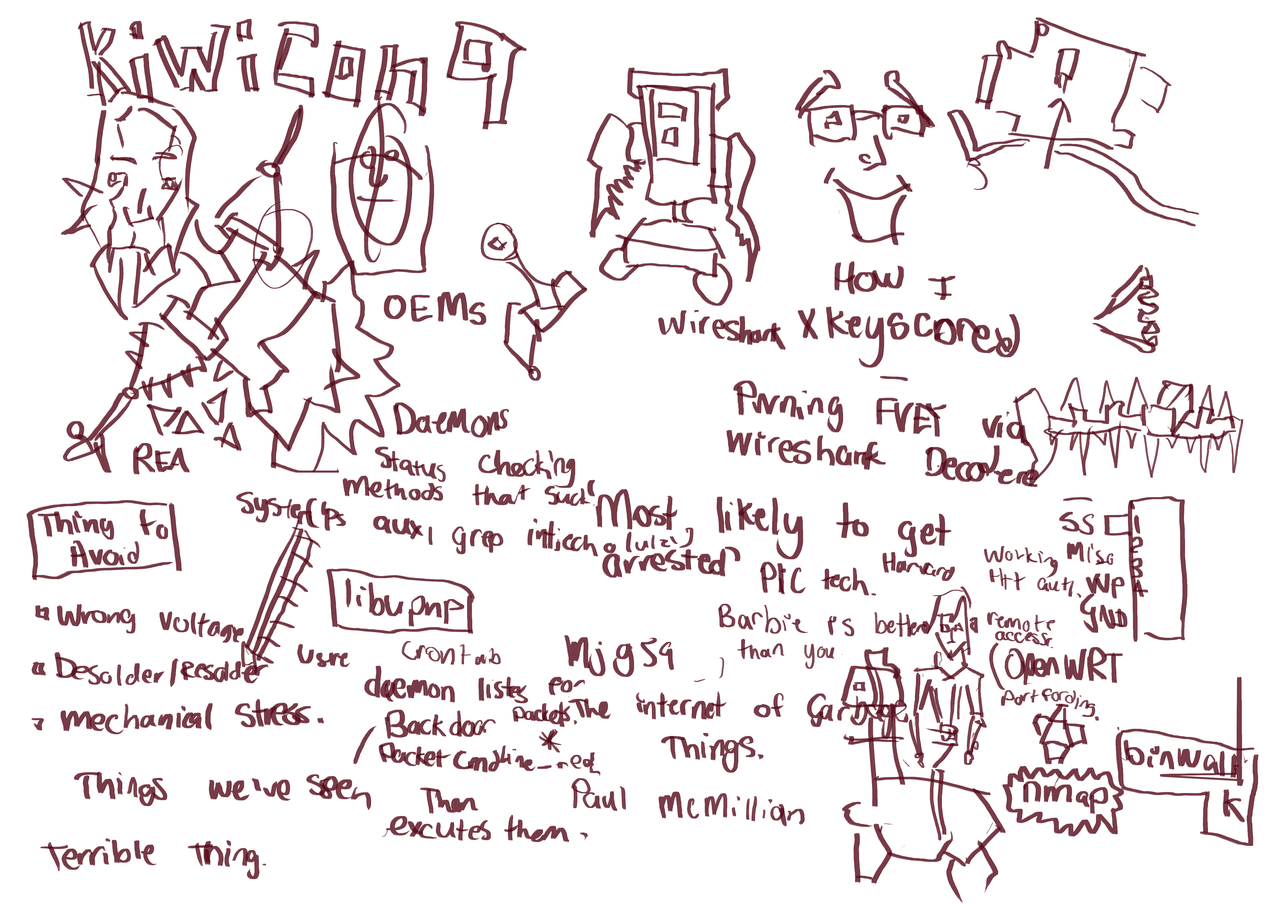 KiWiCon 9
OEMs
How I
Wireshark XKeyscored
Pwning FVEY via
Wireshark Decoders
REA
Daemons
Status checking
methods that suck
aux | grep
Most likely to get
arrested
(lulz)
PIC tech.
Harvard
Barbie is better
than you
Thing to
Avoid
Wrong voltage
Desolder/Resolder
mechanical stress.
libupnp
Crontab
daemon lists for
packets.
Backdoor
Then
excutes them.
Mjg59
The internet of Garbage
Things.
Paul McMillian
Things we've seen
Terrible Thing.
SS
1
2
3
4
Miso
WP
GND
Working
Htt auth.
remote
access.
OpenWRT
nmap
binwalk
K